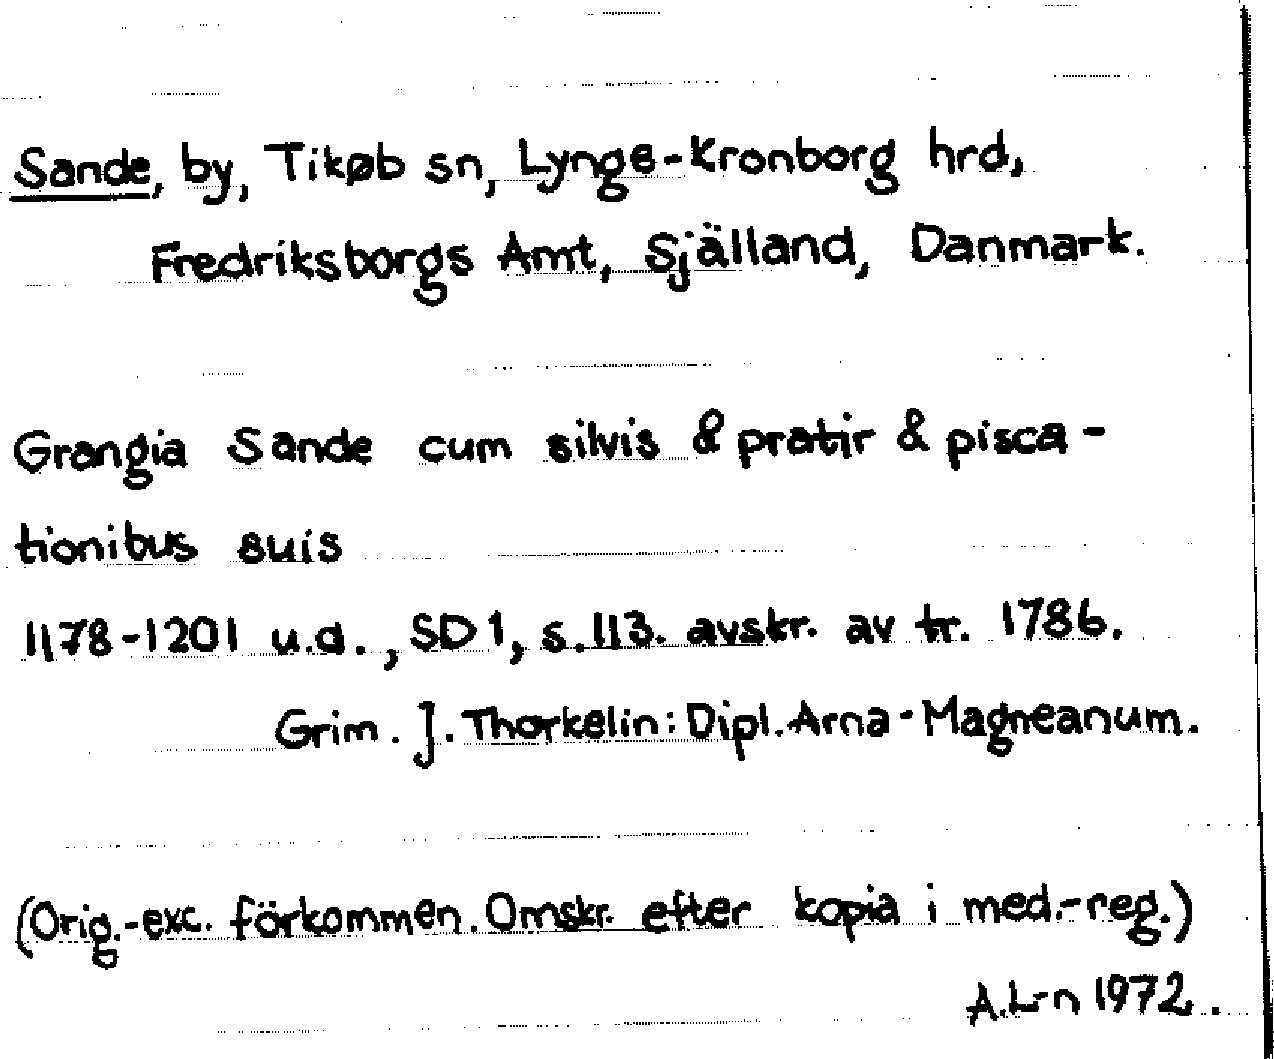 Sande, by, Tikøb sn, Lynge-Kronborg hrd,
Fredriksborgs Amt, Själland, Danmark.
Grangia Sande cum silvis & pratir & pisca-
tionibus suis
1178-1201 u.d., SD 1, s. 113. avskr. av tr. 1786.
Grim. J. Thorkelin: Dipl. Arna-Magneanum.
(Orig.-exc. förkommen. Omskr. efter kopia i med.-reg.)
A.L-n 1972.